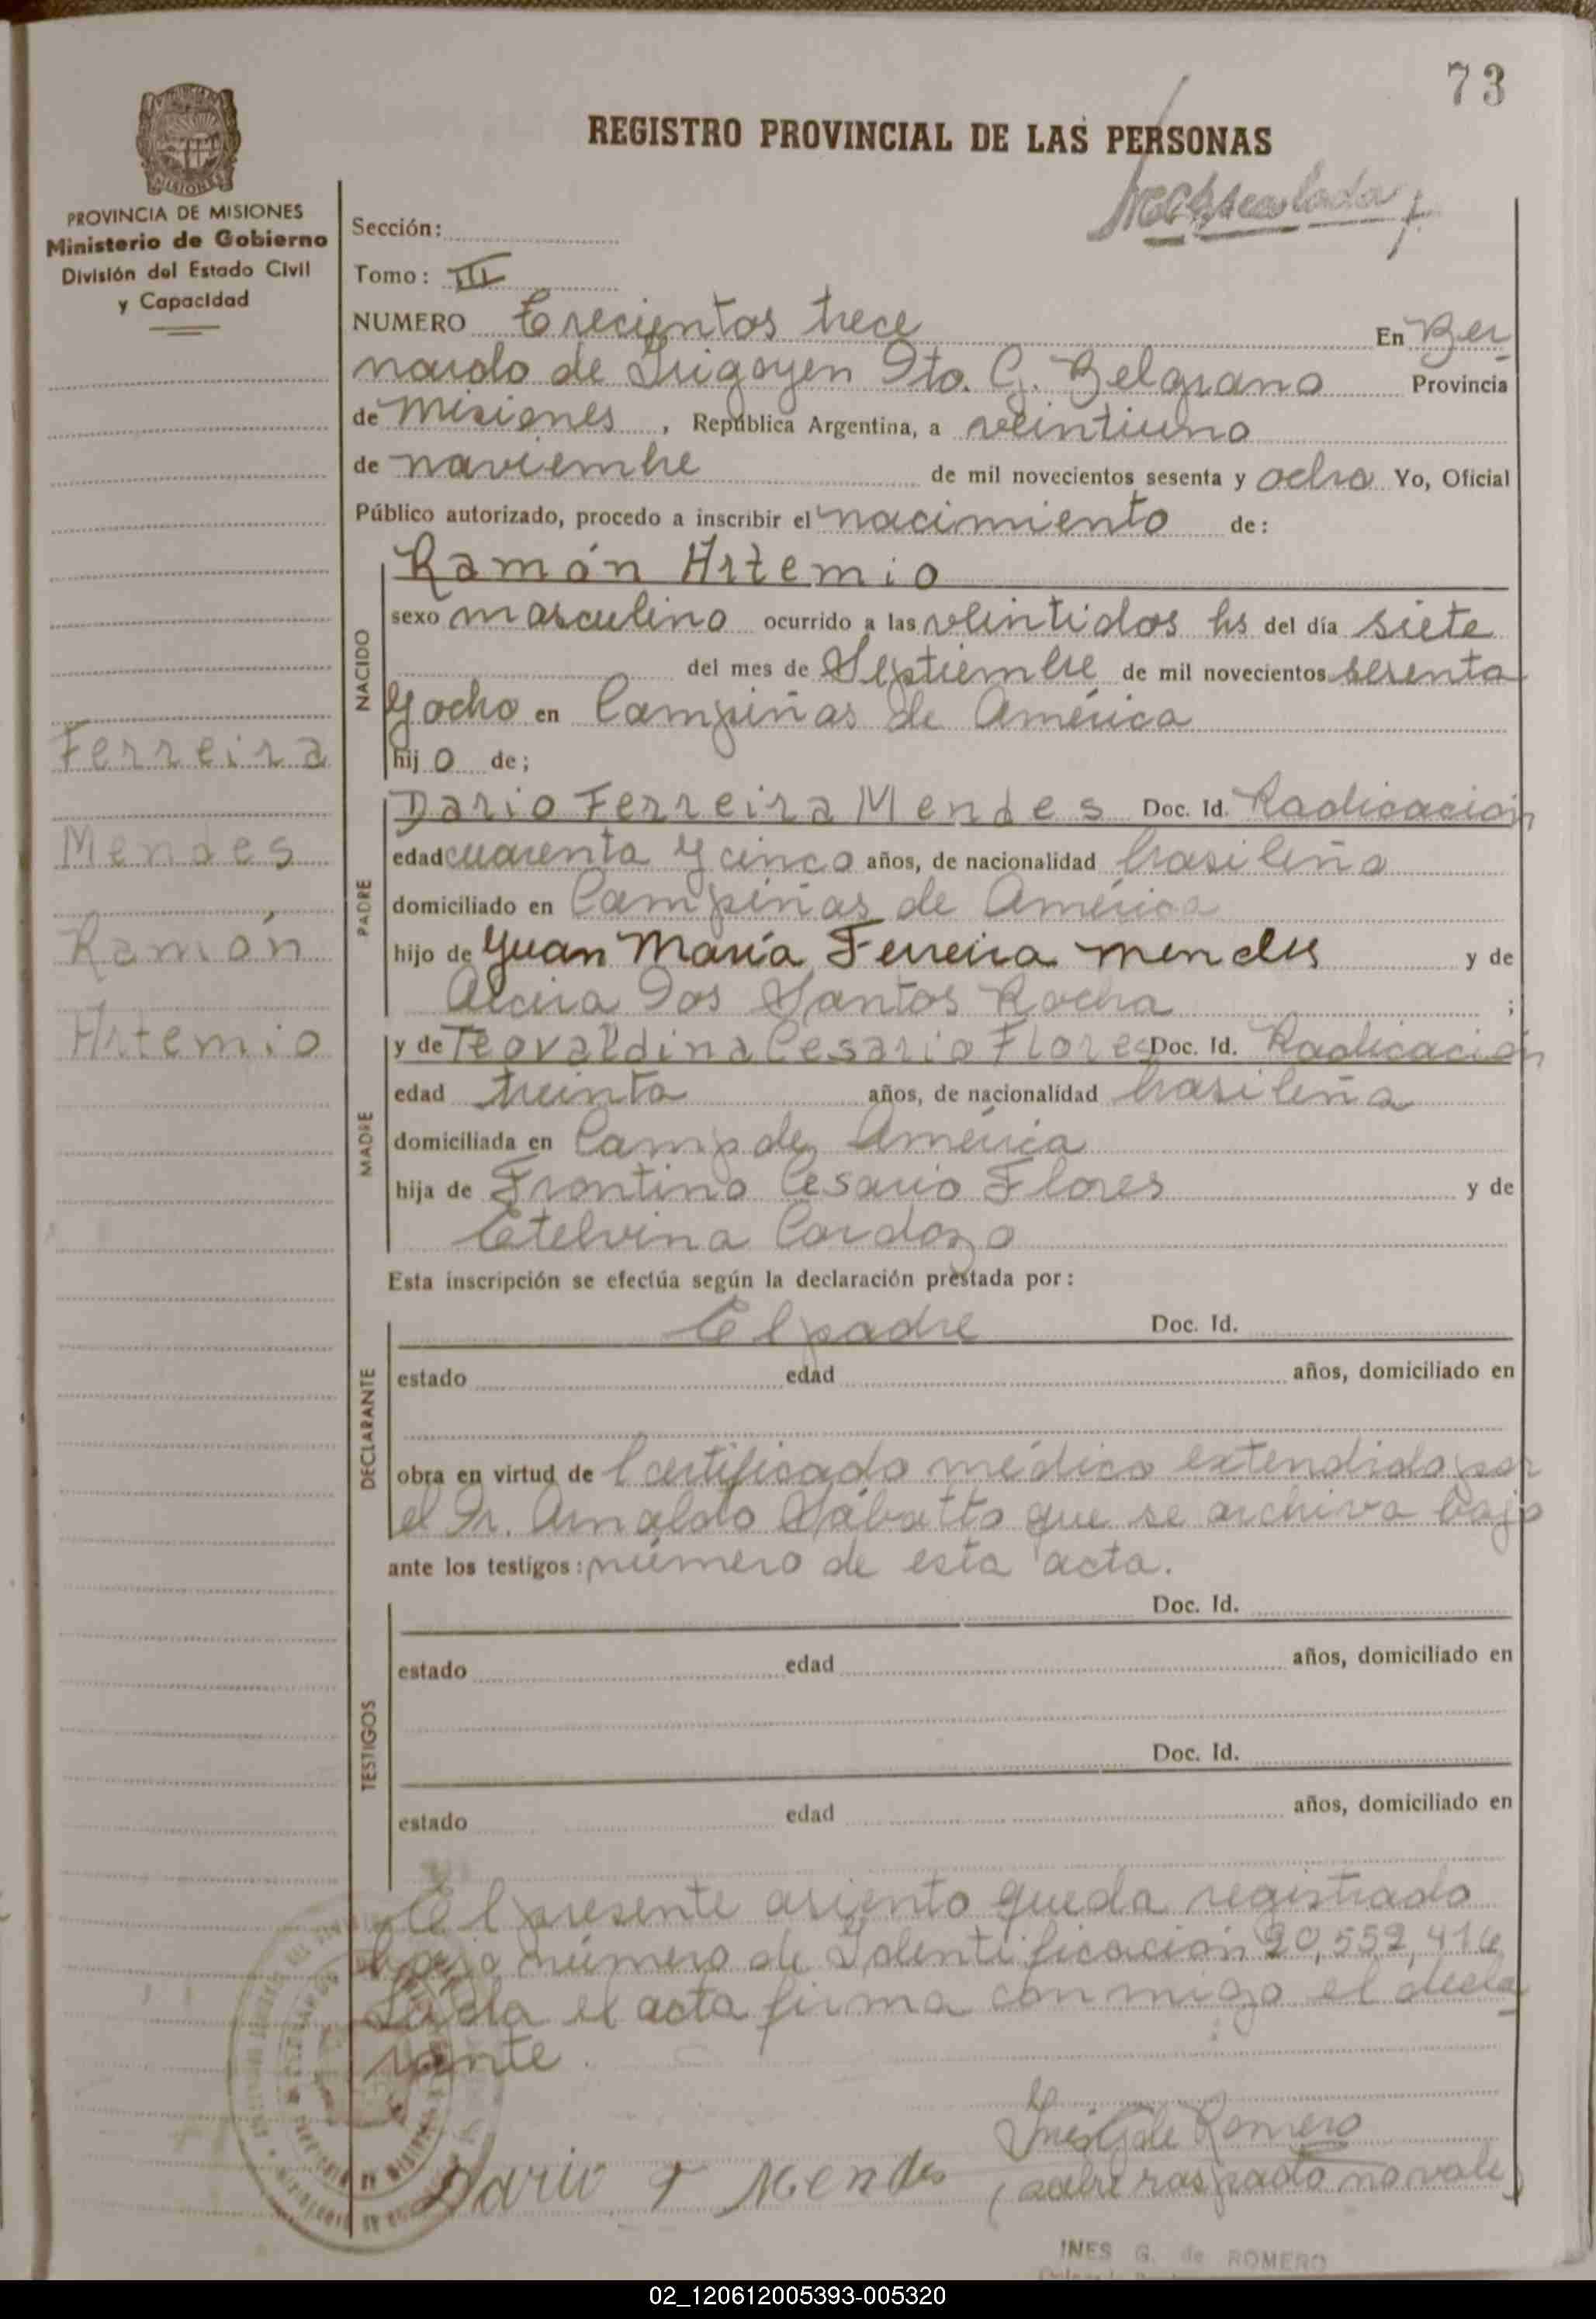 73
REGISTRO PROVINCIAL DE LAS PERSONAS
MISIONES
PROVINCIA DE MISIONES
Ministerio de Gobierno
División del Estado Civil
y Capacidad
Sección:
Tomo: III
NUMERO Trecientos trece En Ber
nardo de Irigoyen Dto. G. Belgrano Provincia
de Misiones, República Argentina, a veintiuno
de noviembre de mil novecientos sesenta y ocho Yo, Oficial
Público autorizado, procedo a inscribir el nacimiento de:
NACIDO
Ramón Artemio
sexo masculino ocurrido a las veintidos hs del día siete
del mes de Septiembre de mil novecientos sesenta
y ocho en Campiñas de América
hijo de;
Ferreira
Mendes
Ramón
Artemio
PADRE
Dario Ferreira Mendes Doc. Id. Radicación
edad cuarenta y cinco años, de nacionalidad brasileña
domiciliado en Campiñas de América
hijo de Juan María Ferreira Mendes y de
Alcira Dos Santos Rocha ;
MADRE
y de Teovaldina Cesario Flores Doc. Id. Radicación
edad treinta años, de nacionalidad brasileña
domiciliada en Camp de América
hija de Frontino Cesario Flores y de
Etelvina Cardozo
Esta inscripción se efectúa según la declaración prestada por:
DECLARANTE
El padre Doc. Id.
estado edad años, domiciliado en
obra en virtud de Certificado médico extendido por
el Dr. Arnaldo Sábatto que se archiva bajo
ante los testigos: número de esta acta.
TESTIGOS
Doc. Id.
estado edad años, domiciliado en
Doc. Id.
estado edad años, domiciliado en
El presente asiento queda registrado
bajo número de Identificación 20,552,414
Leida el acta firma conmigo el decla
rante.
Inés G de Romero
Dario F Mendes (sobre raspado no vale)
INES G. de ROMERO
02_120612005393-005320